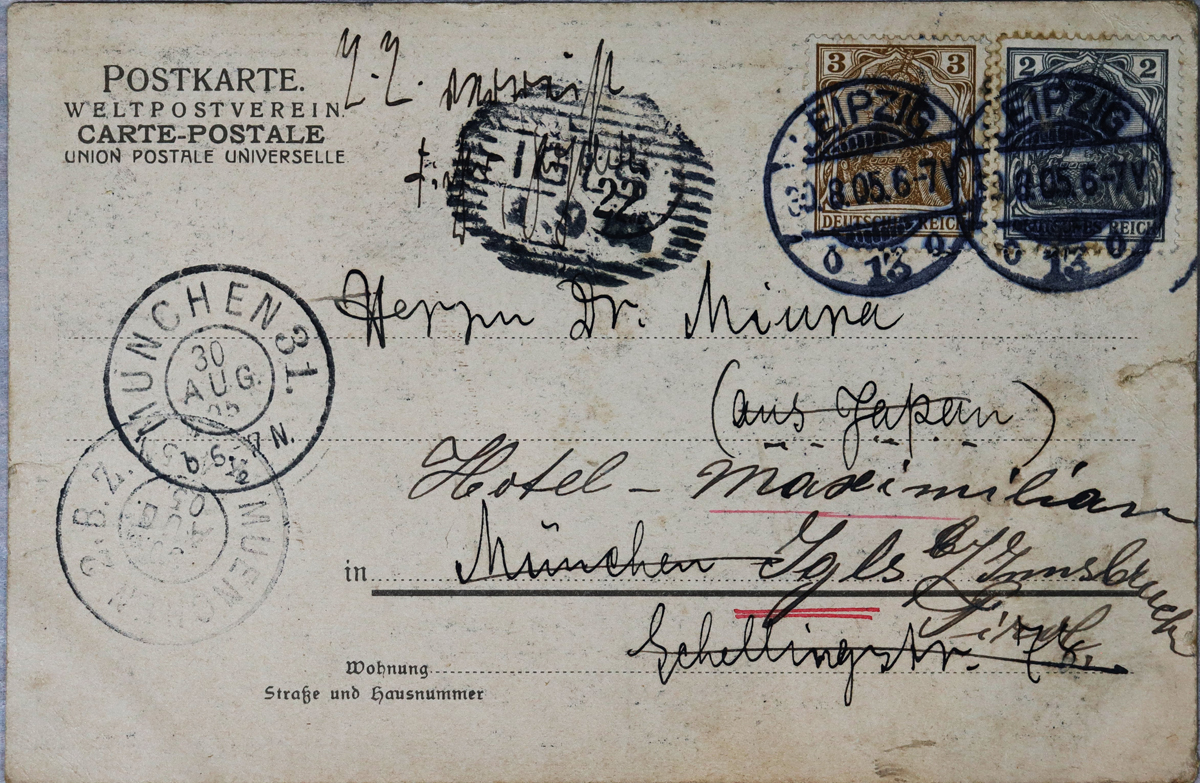 POSTKARTE.
WELTPOSTVEREIN.
CARTE-POSTALE
UNION POSTALE UNIVERSELLE
3 3
DEUTSCHES REICH
2 2
DEUTSCHES REICH
LEIPZIG
8.05.6-7V
13
LEIPZIG
8.05.6-7V
13
IGLS
22
MÜNCHEN 31.
30
AUG.
05
Herrn Dr. Miura
(aus Japan)
Hotel - Maximilian
in München Igls b/Innsbruck
Tirol
Schellingstr.
Wohnung
Straße und Hausnummer